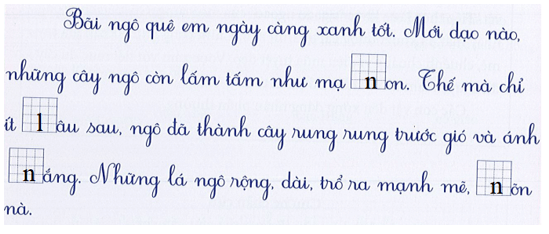 Bãi ngô quê em ngày càng xanh tốt. Mới dạo nào,
những cây ngô còn lấm tấm như mạ non. Thế mà chỉ
ít lâu sau, ngô đã thành cây rung rung trước gió và ánh
nắng. Những lá ngô rộng, dài, trổ ra mạnh mẽ, nõn
nà.